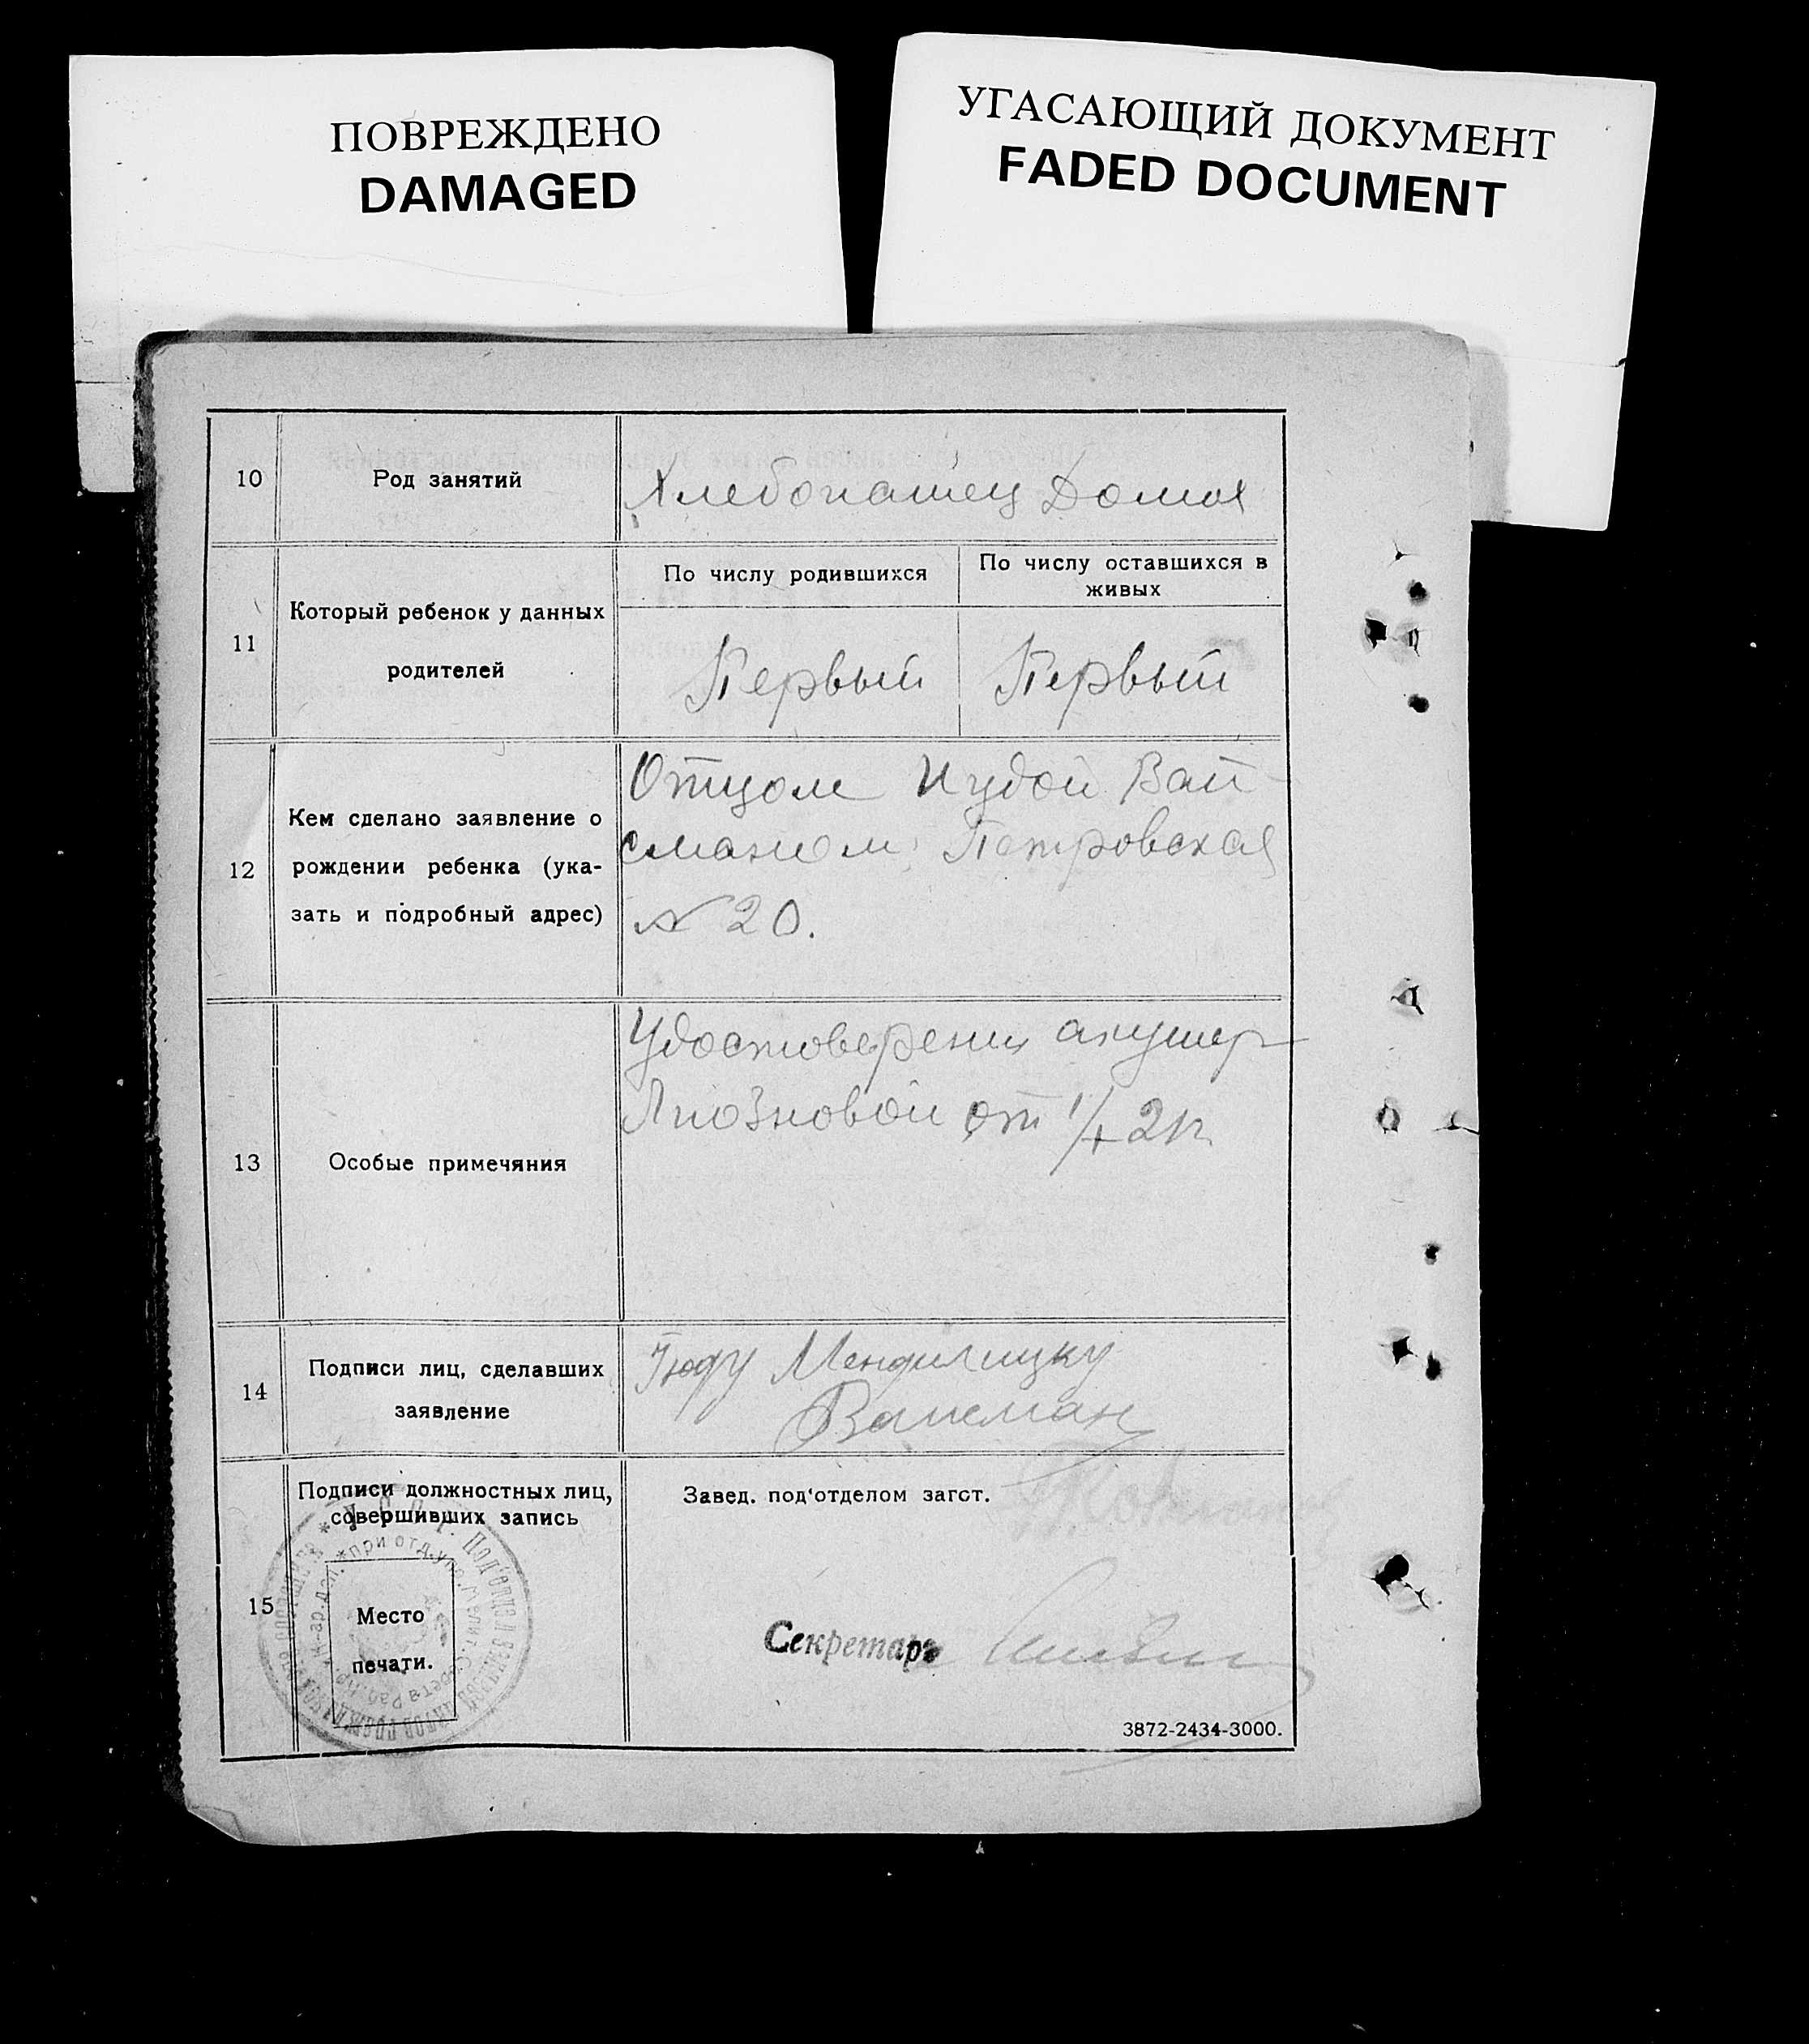 ПОВРЕЖДЕНО
DAMAGED
УГАСАЮЩИЙ ДОКУМЕНТ
FADED DOCUMENT
10
Род занятий
Хлебопашец Домох
11
Который ребенок у данных
родителей
По числу родившихся
По числу оставшихся в
живых
Первый
Первый
12
Кем сделано заявление о
рождении ребенка (ука-
зать и подробный адрес)
Отцом Иудой Вай-
сманом, Петровская
№ 20.
13
Особые примечяния
Удостоверения акушер
Лиозновой от
14
Подписи лиц, сделавших
заявление
Вайсман
15
Подписи должностных лиц,
совершивших запись
Место
печати.
Завед. под‘отделом загст.
Секретарь
3872-2434-3000.